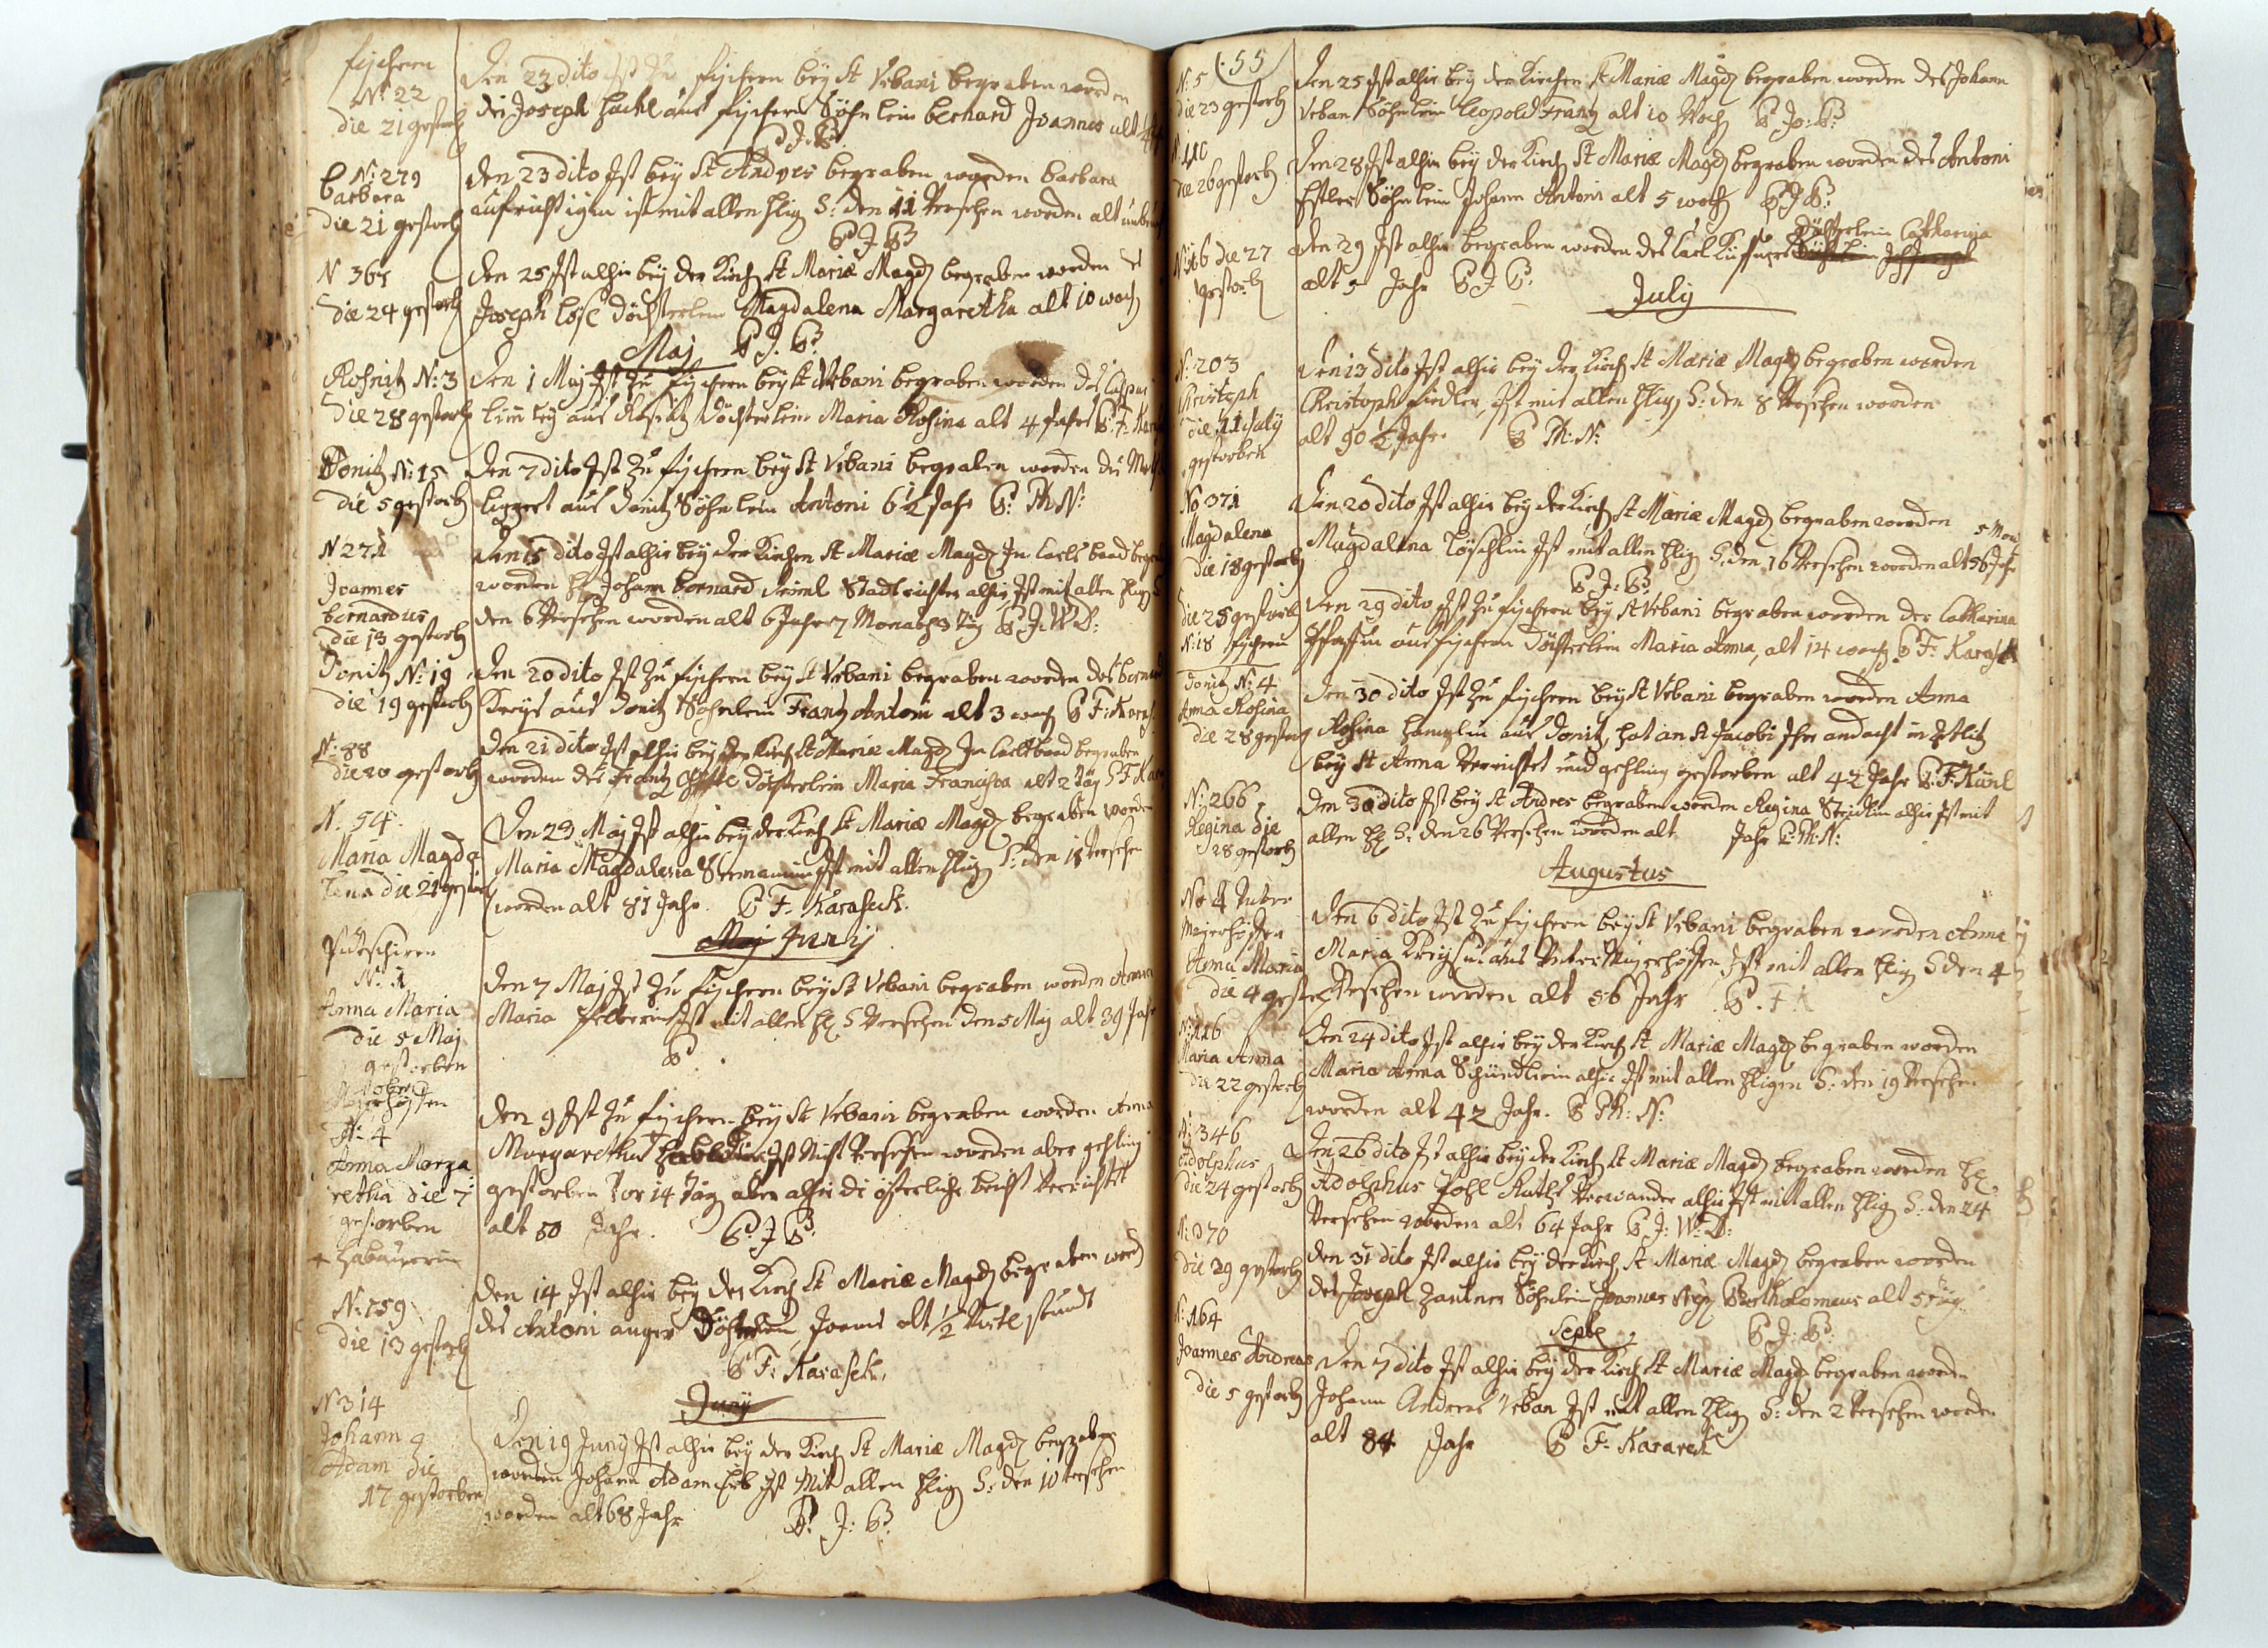 fischern
N: 22
die 21 gestorb
Den 23 dito Ist Zu fischern beÿ St Vrbani begraben worden
des Joseph Hackl aus fischern Söhnlein bernard Joannes alt
P J: B:
N: 279
barbara
die 21 gestorb
Den 23 dito Ist beÿ St Andres begraben worden barbara
ist mit allen Hlig S: den 11 Versehen worden alt
P J B
N 365
die 24 gestorb
Den 25 Ist alhir beÿ der Kirch St Mariæ Magd begraben worden des
Joseph Döchterlein Magdalena Margaretha alt 10 woch
P J. B:
Maj
Rosnitz N: 3
die 28 gestorb
Den 1 Maj Ist Zu fischern beÿ St Vrbani begraben worden des Caspar
aus Rosnitz Döchterlein Maria Rosina alt 4 Jahr P F: Kara
Donitz N: 15
die 5 gestorb
Den 7 dito Ist Zu fischern beÿ St Vrbani begraben worden des
aus Donitz Söhnlein Antoni 6 1/2 Jahr P: Th N:
N 271
Joannes
bernardus
die 13 gestorb
Den 15 dito Ist alhir beÿ der Kirchen St Mariæ Magd In Carls baad
worden H Johann bernard Deiml Stadtrichter alhir Ist mit allen Hlig
den 6 Versehen worden alt 6 Jahr 7 Monath 3 Tag P J. W D:
Donitz N: 19
die 19 gestorb
Den 20 dito Ist Zu fischern beÿ St Vrbani begraben worden des bernard
aus Donitz Söhnlein Frantz Antoni alt 3 woch P F: Karas
N: 88
die 20 gestorb
Den 21 dito Ist alhir beÿ der Kirch St Mariæ Magd In Carlsbaad begraben
worden des Frantz Döchterlein Maria Francisca alt 2 Täg P F Kara
N. 54.
Maria Magda
lena die 21 gestor
Den 23 Maj Ist alhir beÿ der Kirch St Mariæ Magd begraben worden
Maria Magdalena Ist mit allen Hlig S: den 18 Versehen
worden alt 81 Jahr. P F. Karaseck.
Maj Junij
Putschirn
N. 1
Anna Maria
die 5 Maj
gestorben
Den 7 Maj Ist Zu fischern beÿ St Vrbani begraben worden Anna
Maria Ist mit allen H S Versehen den 5 Maj alt 39 Jahr
P
ober
Mayerhöffen
N: 4
Anna Marga
retha die 7
gestorben
+ Habaurin
Den 9 Ist Zu fischern beÿ St Vrbani begraben worden Anna
Margaretha Ist Nicht Versehen worden aber gehling
gestorben Vor 14 Täg aber alhir di österliche beicht Verrichtet
alt 50 Jahr. P: J B:
N: 159
die 13 gestorb
Den 14 Ist alhir beÿ der Kirch St Mariæ Magd begraben word
des Antoni anger Joanes alt 1/2 Viertl stundt
P F: Karaseck.
Junij
N 314
Johann
Adam die
17 gestorben
Den 19 Junij Ist alhir beÿ der Kirch St Mariæ Magd begraben
worden Johann Adam Ist Mit allen Hlig S: den 10 Versehen
worden alt 68 Jahr P: J: B:
(55)
N: 5
die 23 gestorb
Den 25 Ist alhir beÿ der Kirchen St Mariæ Magd begraben worden des Johann
Vrban Söhnlein Leopold Frantz alt 10 Woch P Jo: B:
die 26 gestorb
Den 28 Ist alhir beÿ der Kirch St Mariæ Magd begraben worden des Antoni
Söhnlein Johann Antoni alt 5 woch P J B:
die 27
gestorb
Den 29 Ist alhir begraben worden des Carl Döchterlein Catharina
alt 5 Jahr P J B:
Julij
N: 203
Christoph
die 11 Julij
gestorben
Den 13 dito Ist alhir beÿ der Kirch St Mariæ Magd begraben worden
Christoph fiedler, Ist mit allen Hlig S: den 8 Versehen worden
alt 90 1/2 Jahr. P Th: N:
No 371
Magdalena
die 18 gestorb
Den 20 dito Ist alhir beÿ der Kirch St Mariæ Magd begraben worden
Magdalena Löschlin Ist mit allen Hlig S. den 16 Versehen worden alt 56 Jahr 5 Mon
P J: B:
die 28 gestorb
N: 18 fischern
Den 29 dito Ist Zu fischern beÿ St Vrbani begraben worden der Catharina
aus fischern Döchterlein Maria Anna, alt 14 woch P F: Karaseck
Donitz N: 4
Anna Rosina
die 28 gestorb
Den 30 dito Ist Zu fischern beÿ St Vrbani begraben worden Anna
Rosina aus Donitz, hat an St Jacobi Ihre andacht in
beÿ St Anna Verrichtet und gehling gestorben alt 42 Jahr P: F:
N: 266
Regina die
28 gestorb
Den 30 dito Ist beÿ St Andres begraben worden Regina alhir Ist mit
allen H S: den 26 Versehen worden alt Jahr P: Th: N:
Augustus
No 4 Vnter
Mejerhöffen
Anna Maria
die 4 gestor
Den 6 dito Ist Zu fischern beÿ St Vrbani begraben worden Anna
Maria aus Vnter Majerhöffen Ist mit allen Hlig S den 4
Versehen worden alt 56 Jahr P. F K
Maria Anna
die 22 gestorb
Den 24 dito Ist alhir beÿ der Kirch St Mariæ Magd begraben worden
Maria Anna Schindlerin alhir Ist mit allen Hligen S: den 19 Versehen
worden alt 42 Jahr. P Th: N:
N: 346
Adolphus
die 24 gestorb
Den 26 dito Ist alhir beÿ der Kirch St Mariæ Magd begraben worden H
Adolphus Pohl Raths Verwander alhir Ist mit allen Hlig S: den 24
Versehen worden alt 64 Jahr P J: W: D:
die 29 gestorb
Den 31 dito Ist alhir beÿ der Kirch St Mariæ Magd begraben worden
des Joseph Zantner Söhnlein Joannes Bartholomeus alt 5 täg.
P J: B:
Septe
N: 164
Joannes Andreas
die 5 gestorb
Den 7 dito Ist alhir beÿ der Kirch St Mariæ Magd begraben worden
Johann Andreas Vrban Ist mit allen Hlig S: den 2 Versehen worden
alt 84 Jahr P F. Karaseck